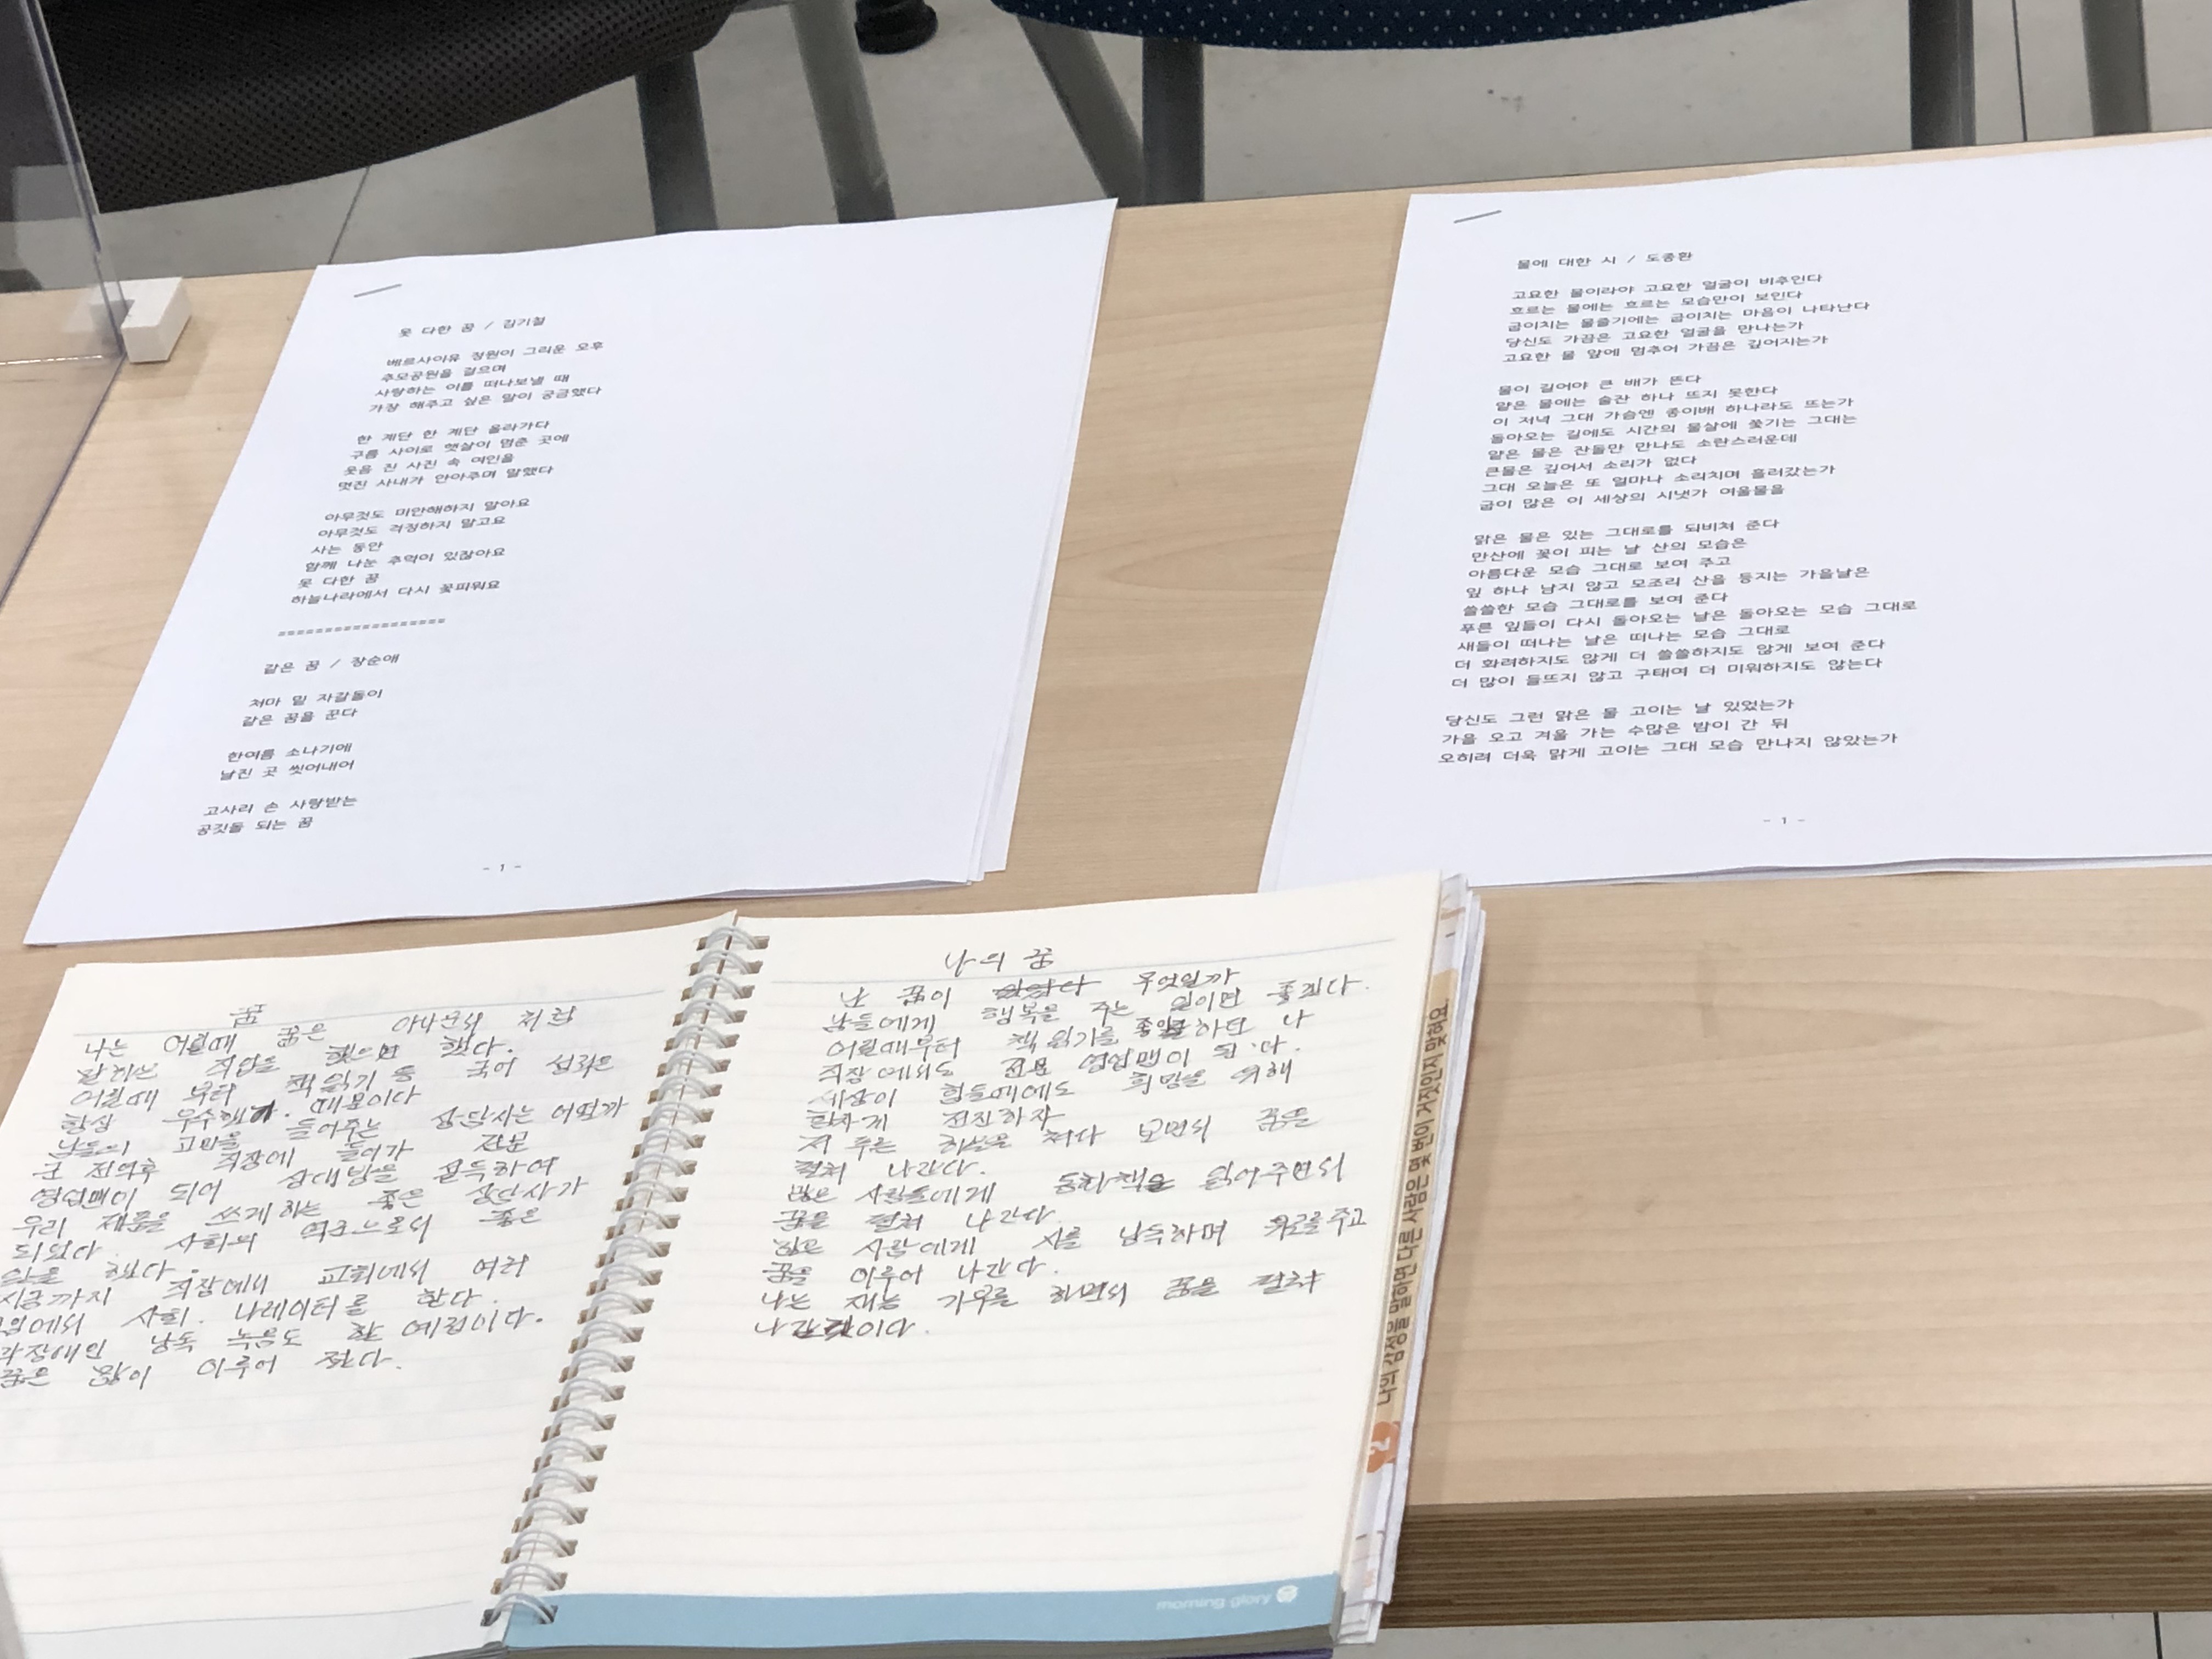 못 다한 꿈 / 김기철
베르사이유 정원이 그리운 오후
추모공원을 걸으며
사랑하는 이를 떠나보낼 때
가장 해주고 싶은 말이 궁금했다
한 계단 한 계단 올라가다
구름 사이로 햇살이 멈춘 곳에
웃음 진 사진 속 여인을
멋진 사내가 안아주며 말했다
아무것도 미안해하지 말아요
아무것도 걱정하지 말고요
사는 동안
함께 나눈 추억이 있잖아요
못 다한 꿈
하늘나라에서 다시 꽃피워요
==================
같은 꿈 / 장순애
처마 밑 자갈돌이
같은 꿈을 꾼다
한여름 소나기에
날진 곳 씻어내어
고사리 손 사랑받는
공깃돌 되는 꿈
- 1 -
물에 대한 시 / 도종환
고요한 물이라야 고요한 얼굴이 비추인다
흐르는 물에는 흐르는 모습만이 보인다
굽이치는 물줄기에는 굽이치는 마음이 나타난다
당신도 가끔은 고요한 얼굴을 만나는가
고요한 물 앞에 멈추어 가끔은 깊어지는가
물이 깊어야 큰 배가 뜬다
얕은 물에는 술잔 하나 뜨지 못한다
이 저녁 그대 가슴엔 종이배 하나라도 뜨는가
돌아오는 길에도 시간의 물살에 쫓기는 그대는
얕은 물은 잔돌만 만나도 소란스러운데
큰물은 깊어서 소리가 없다
그대 오늘은 또 얼마나 소리치며 흘러갔는가
굽이 많은 이 세상의 시냇가 여울물을
맑은 물은 있는 그대로를 되비쳐 준다
만산에 꽃이 피는 날 산의 모습은
아름다운 모습 그대로 보여 주고
잎 하나 남지 않고 모조리 산을 등지는 가을날은
쓸쓸한 모습 그대로를 보여 준다
푸른 잎들이 다시 돌아오는 날은 돌아오는 모습 그대로
새들이 떠나는 날은 떠나는 모습 그대로
더 화려하지도 않게 더 쓸쓸하지도 않게 보여 준다
더 많이 들뜨지 않고 구태여 더 미워하지도 않는다
당신도 그런 맑은 물 고이는 날 있었는가
가을 오고 겨울 가는 수많은 밤이 간 뒤
오히려 더욱 맑게 고이는 그대 모습 만나지 않았는가
- 1 -
꿈
나는 어릴때 꿈은 아나운서 처럼
말하는 직업을 했으면 했다.
어릴때 부터 책읽기 등 국어 성적은
항상 우수했기. 때문이다
남들의 고민을 들어주는 상담사는 어떤까
군 전역후 직장에 들어가 전문
영업맨이 되어 상대방을 설득하여
우리 제품을 쓰게하는 좋은 상담사가
되었다. 사회의 역군으로서 좋은
일을 했다.
지금까지 직장에서 교회에서 여러
에서 사회. 나레이터를 한다.
각장애인 낭독 녹음도 할 예정이다.
꿈은 많이 이루어 졌다.
나의 꿈
난 꿈이 무엇일까
남들에게 행복을 주는 일이면 좋겠다.
어릴때부터 책 읽기를 좋아하던 나
직장에서도 전문 영업맨이 된다.
세상이 힘들때에도 희망을 위해
힘차게 전진하자
저 푸른 하늘을 쳐다 보면서 꿈을
펼쳐 나간다.
많은 사람들에게 동화책을 읽어주면서
꿈을 펼쳐 나간다.
많은 사람에게 시를 낭독하며 위로를주고
꿈을 이루어 나간다.
나는 재능 기부를 하면서 꿈을 펼쳐
나간다.
morning glory
2 나의 감정을 말하면 다른 사람은 몇 번이 거짓인지 맞혀요.